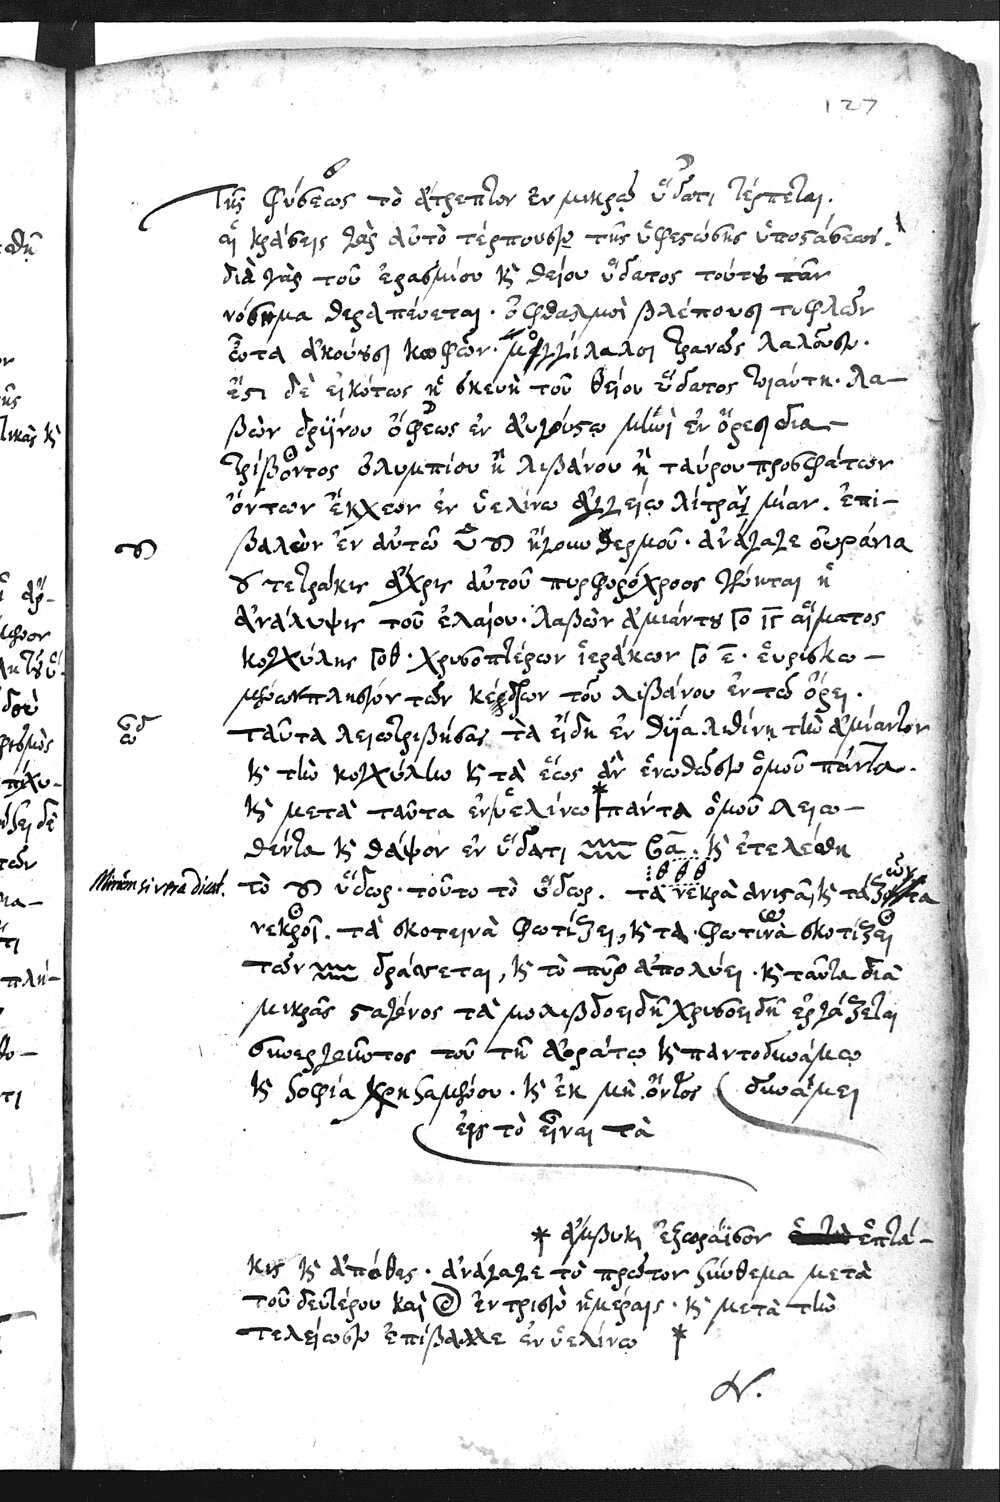 127
Τῆς φύσεως τὸ ἄτρεπτον ἐν μικρῷ ὕδατι τέρπεται.
αἱ κράσεις γὰρ αὐτὸ τέρπουσιν τῆς ὑφεστώσης ὑποστάσεως.
διὰ γὰρ τοῦ ἐρασμίου κ θείου ὕδατος τούτου πᾶν
νόσημα θεραπεύεται. ὀφθαλμοὶ βλέπουσι τυφλῶν
ὦτα ἀκούουσι κωφῶν. μογγίλαλοι τρανῶς λαλοῦσιν.
ἔστι δὲ εἰκότως ἡ σκευὴ τοῦ θείου ὕδατος τοιαύτη. λα-
βὼν δρυΐνου ὄφεως ἐν αὐγούστῳ μηνὶ ἐν ὄρεσι δια-
τρίβοντος ὀλυμπίου ἢ λιβάνου ἢ ταύρου προσφάτων
ὄντων ἔκχεον ἐν ὑελίνῳ ἀγγείῳ λίτραν μίαν. ἐπι-
βαλὼν ἐν αὐτῷ ἤγουν θερμοῦ. ἀνάγαγε οὐράνια
τετράκις ἄχρις αὐτοῦ πυρφορόχροος γένηται ἡ
ἀνάλυψις τοῦ ἐλαίου. λαβὼν ἀμιάντου Γο ιγ αἵματος
κογχύλης Γοθ. χρυσοπτέρων ἱεράκων Γο ε. εὑρισκο-
μένων πλησίον τῶν κέδρων τοῦ λιβάνου ἐν τῷ ὄρει.
ταῦτα λειωτριβήσας τὰ εἴδη ἐν θυΐα λιθίνῃ τὴν ἀμίαντον
κ τὴν κογχύλην κ τὰ ἕως ἂν ἑνωθῶσιν ὁμοῦ πάντα.
κ μετὰ ταῦτα ἐν ὑελίνῳ * πάντα ὁμοῦ λειω-
θέντα κ θάψον ἐν ὕδατι κ ἐτελέσθη
Mirum si vera dicat. τὸ ὕδωρ. τοῦτο τὸ ὕδωρ. τὰ νεκρὰ ἀνιστᾶ κ τὰ ζῶντα
νεκροῖ. τὰ σκοτεινὰ φωτίζει, κ τὰ φωτινὰ σκοτίζει
τῶν δράσεται, κ τὸ πῦρ ἀπολύει. κ ταῦτα διὰ
μικρᾶς σταγόνος τὰ μολιβδοειδῆ χρυσοειδῆ ἐργάζεται
συνεργοῦντος τοῦ τῇ ἀοράτῳ κ παντοδυνάμῳ
κ σοφίᾳ χρησαμένου. κ ἐκ μὴ ὄντος δυνάμει
εἰς τὸ εἶναι τὰ
* ἄμβυκι ἐξωράϊσον ἑπτά-
κις κ ἀπόθες. ἀνάγαγε τὸ πρῶτον σύνθεμα μετὰ
τοῦ δευτέρου καὶ ἐν τρισὶν ἡμέραις. κ μετὰ τὴν
τελείωσιν ἐπίβαλλε ἐν ὑελίνῳ *